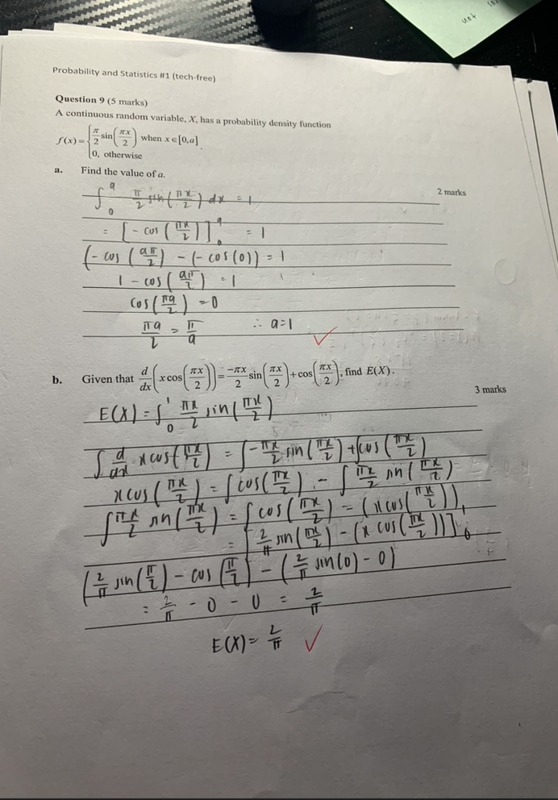 Probability and Statistics #1 (tech-free)
Question 9 (5 marks)
A continuous random variable, X, has a probability density function
f(x) = { π/2 sin(πx/2) when x∈[0,a]
0, otherwise .
a. Find the value of a.
2 marks
∫₀ᵃ π/2 sin(πx/2) dx = 1
= [-cos(πx/2)]₀ᵃ = 1
(-cos(aπ/2) - (-cos(0)) = 1
1 - cos(aπ/2) = 1
cos(πa/2) = 0
πa/2 = π/a ∴ a=1
b. Given that d/dx(x cos(πx/2)) = -πx/2 sin(πx/2) + cos(πx/2), find E(X).
3 marks
E(X) = ∫₀¹ πx/2 sin(πx/2)
∫ d/dx x cos(πx/2) = ∫ -πx/2 sin(πx/2) + cos(πx/2)
x cos(πx/2) = ∫ cos(πx/2) - ∫ πx/2 sin(πx/2)
∫ πx/2 sin(πx/2) = ∫ cos(πx/2) - (x cos(πx/2))
= [2/π sin(πx/2) - (x cos(πx/2))]₀¹
(2/π sin(π/2) - cos(π/2) - (2/π sin(0) - 0)
= 2/π - 0 - 0 = 2/π
E(X) = 2/π